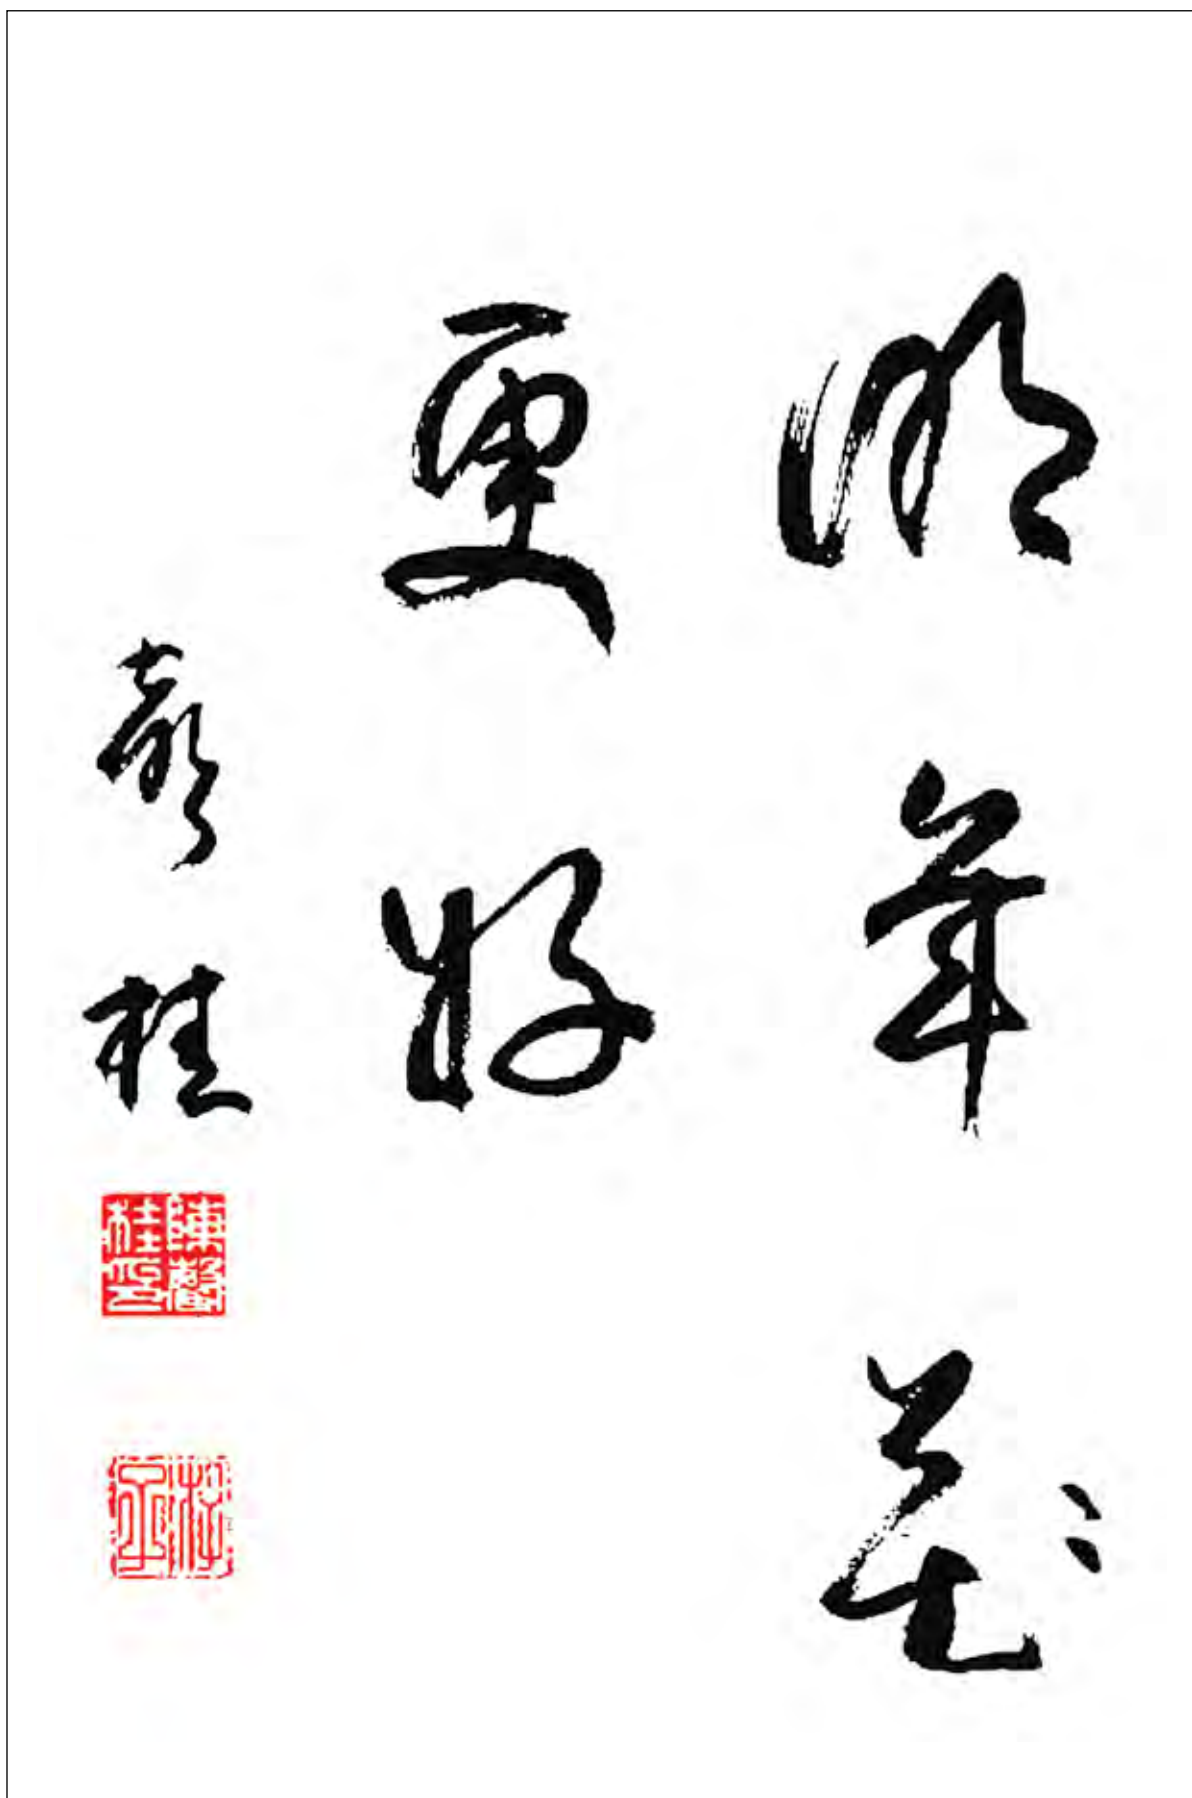 明年花
更好
聲桂
陳聲桂印